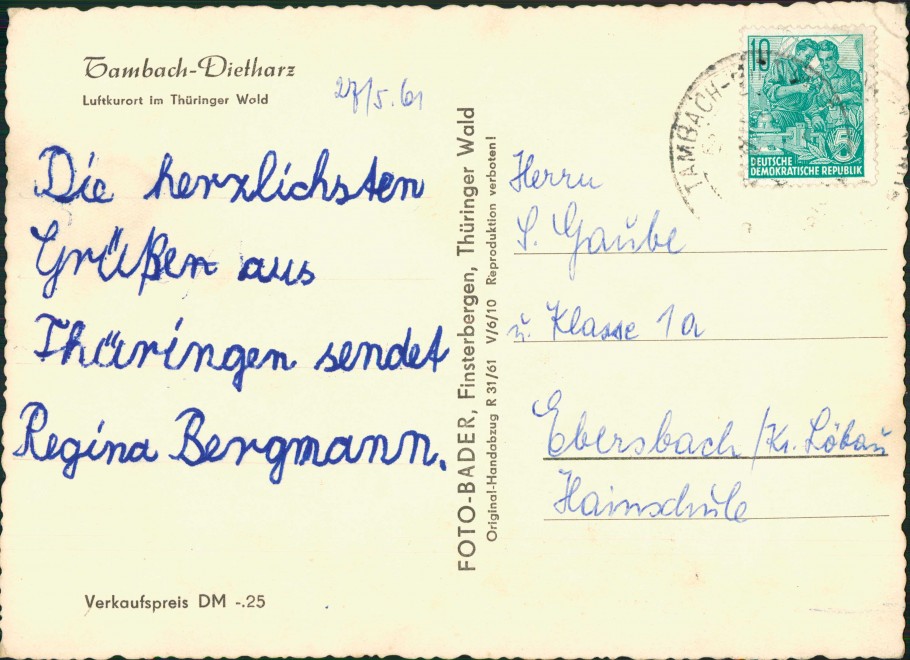 Tambach-Dietharz
Luftkurort im Thüringer Wald
27/5.61
Die herzlichsten
Grüßen aus
Thüringen sendet
Regina Bergmann.
Verkaufspreis DM -.25
FOTO-BADER, Finsterbergen, Thüringer Wald
Original-Handabzug R 31/61 V/6/10 Reproduktion verboten!
TAMBACH-
10
5
DEUTSCHE
DEMOKRATISCHE REPUBLIK
Herrn
S. Gaube
u. Klasse 1a
Ebersbach /Kr. Löbau
Hainschule